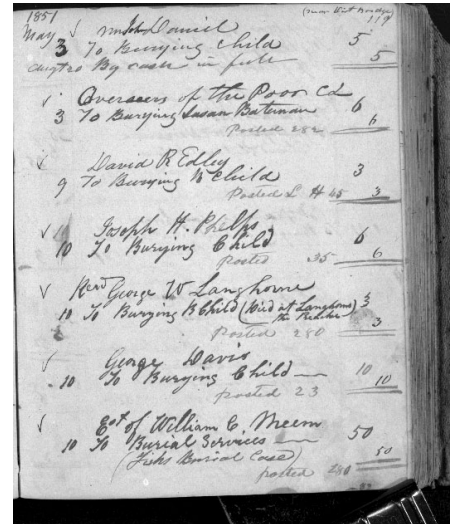 1851 (near Bridge) 119
May √ Mr John Daniel
3 To Burying Child 5
Aug 20 By cash in full 5
√ Overseers of the Poor
3 To Burying Susan Bateman 6
Posted 282 6
√ David R Edley 3
9 To Burying B Child
Posted L H 45 3
√ Joseph H. Phelps
10 To Burying Child 6
posted 35 6
√ Revd George W Langhorne
10 To Burying B Child ( at Langhorne the ) 3
posted 280 3
√ George Davis
10 To Burying Child 10
posted 23 10
√ Est of William C. Meem
10 To Burial Services 50
(Fisks Burial Case) 50
posted 280